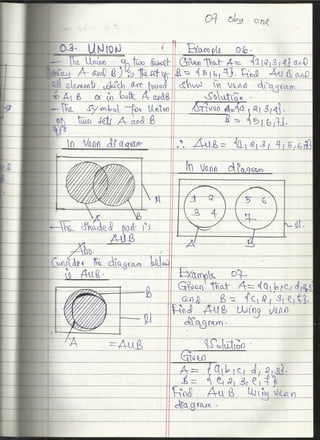 03. UNION
- The Union of two sets
A and B is the set of
all elements which are found
in A, B or in both A and B
- The symbol for Union
of two sets A and B
In venn diagram
A
B
- The shaded part is
AUB
Also
Consider the diagram below
is AUB
B
A
= AUB
Example 06.
Given That A = {1, 2, 3, 4} and
B = {5, 6, 7}. Find AUB and
show in venn diagram.
Solution
Given A = {1, 2, 3, 4}.
B = {5, 6, 7}.
∴ AUB = {1, 2, 3, 4, 5, 6, 7}
In venn diagram
1 2
3 4
5 6
7
A
B
Example 07
Given That A = {a, b, c, d, 2, 3}
and B = {c, 2, 3, e, f}.
Find AUB using venn
diagram.
Solution
Given
A = {a, b, c, d, 2, 3}.
B = {c, 2, 3, e, f}
Find AUB using venn
diagram.